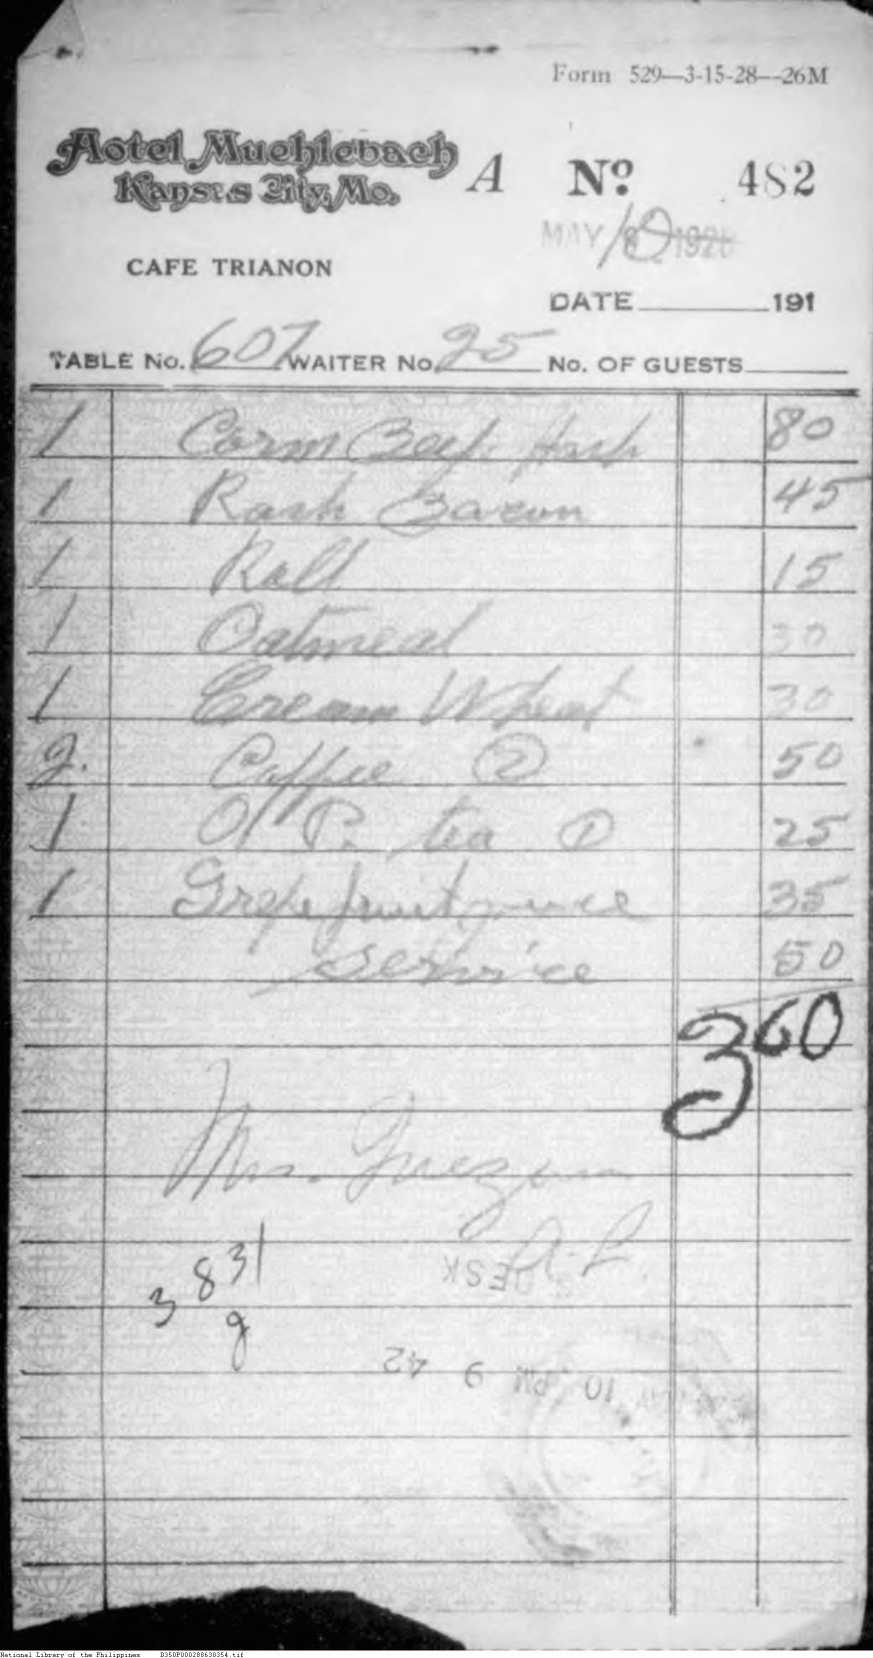 Form 529—3-15-28—26M
Hotel Muehlebach
Kansas City, Mo.
A No. 482
MAY 1928
CAFE TRIANON
DATE 191
TABLE No. 607 WAITER No. 25 No. OF GUESTS
1 Corn Beef Hash 80
1 Rash Bacon 45
1 Roll 15
1 Oatmeal 30
1 Cream Wheat 30
2. Coffee 2 50
1 O P. tea 1 25
1 Grapefruit juice 35
Service 50
3 60
Mrs. Quezon
3 8 31
g
DESK
MAY 10 PM 9 42
National Library of the Philippines B350P000288630354.tif